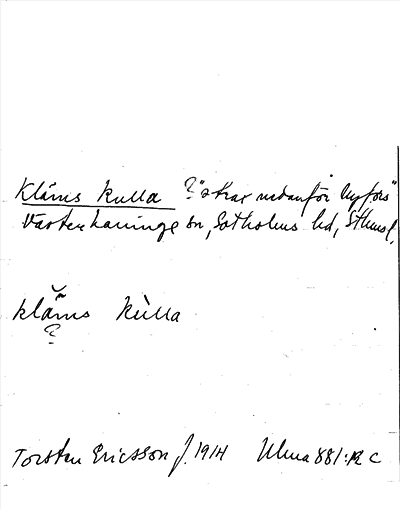 Kläms kulla ? "strax nedanför Nyfors"
Västerhaninge sn, Sotholms hd, Sthms l.
kläms kùlla
?
Torsten Ericsson f. 1914 Ulma 881:12 C